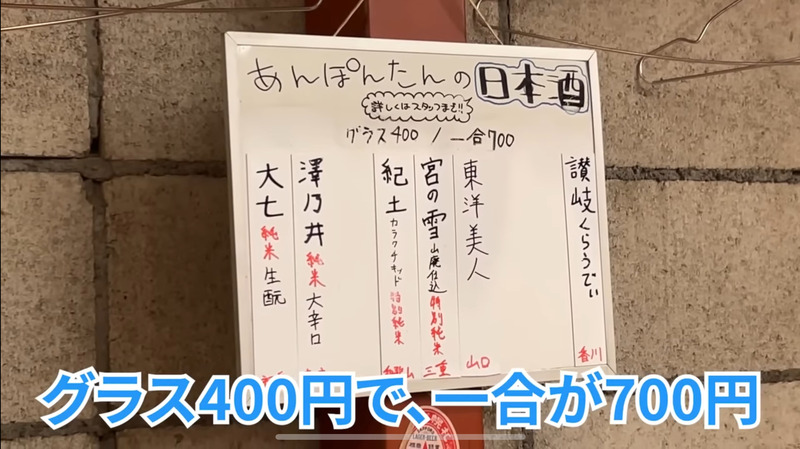 あんぽんたんの日本酒
詳しくはスタッフまで!!
グラス400 / 一合700
讃岐くらうでぃ 香川
東洋美人 山口
宮の雪 山廃仕込 特別純米 三重
紀土 カラクチキッド 特別純米
澤乃井 純米 大辛口
大七 純米 生酛
グラス400円で、一合が700円
LAGER BEER